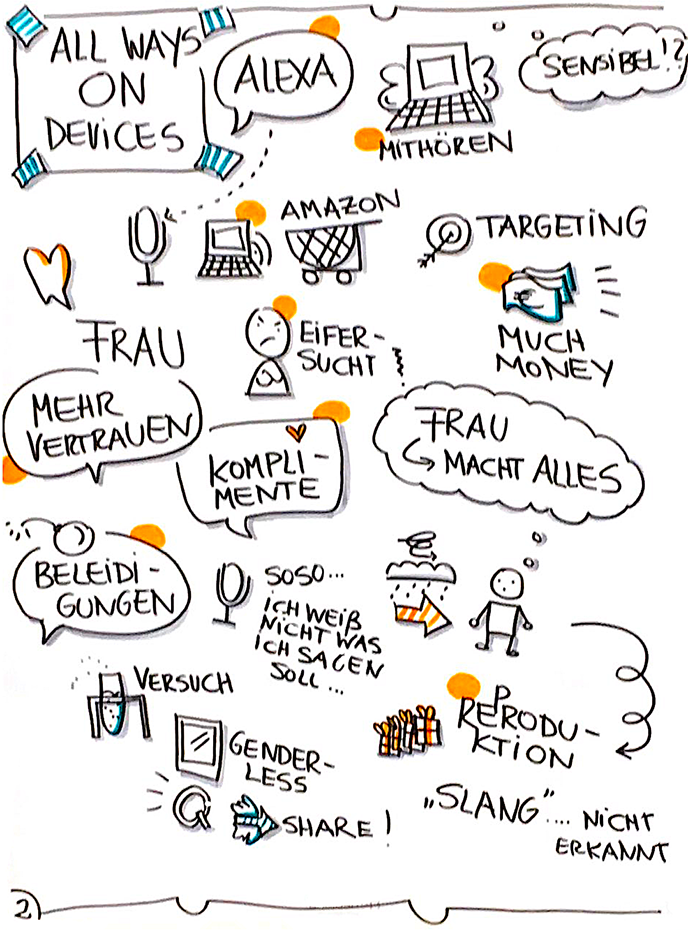 ALL WAYS
ON
DEVICES
ALEXA
MITHÖREN
SENSIBEL!?
AMAZON
TARGETING
€
MUCH
MONEY
FRAU
EIFER-
SUCHT
MEHR
VERTRAUEN
KOMPLI-
MENTE
FRAU
MACHT ALLES
BELEIDI-
GUNGEN
SOSO...
ICH WEIß
NICHT WAS
ICH SAGEN
SOLL...
VERSUCH
GENDER-
LESS
Q
SHARE!
P
RERODU-
KTION
„SLANG"... NICHT
ERKANNT
2